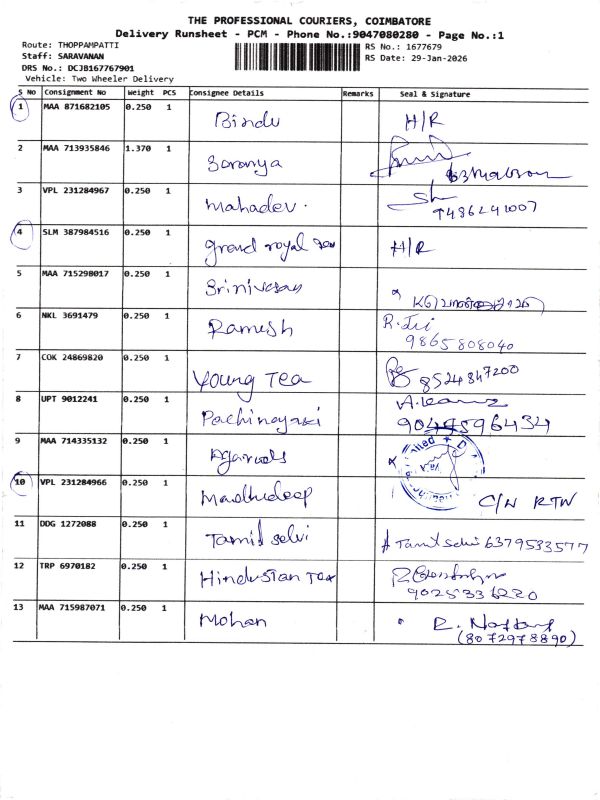 THE PROFESSIONAL COURIERS, COIMBATORE
Delivery Runsheet - PCM - Phone No.:9047080280 - Page No.:1
Route: THOPPAMPATTI
Staff: SARAVANAN
DRS No.: DCJB167767901
Vehicle: Two Wheeler Delivery
RS No.: 1677679
RS Date: 29-Jan-2026
S No Consignment No Weight PCS Consignee Details Remarks Seal & Signature
1 MAA 871682105 0.250 1 Bindu H/R
2 MAA 713935846 1.370 1 Saranya
3 VPL 231284967 0.250 1 Mahadev. 9486241007
4 SLM 387984516 0.250 1 grand royal H/R
5 MAA 715298017 0.250 1 Srinivasan
6 NKL 3691479 0.250 1 Ramesh
9865808040
7 COK 24869820 0.250 1 Young Tea 8524847200
8 UPT 9012241 0.250 1
9 MAA 714335132 0.250 1 Agarwals
10 VPL 231284966 0.250 1 Madhudeep C/N RTN
11 DDG 1272088 0.250 1 Tamil selvi Tamil selvi 6379533577
12 TRP 6970182 0.250 1 Hindustan Tea
13 MAA 715987071 0.250 1 Mohan R.
(8072978890)